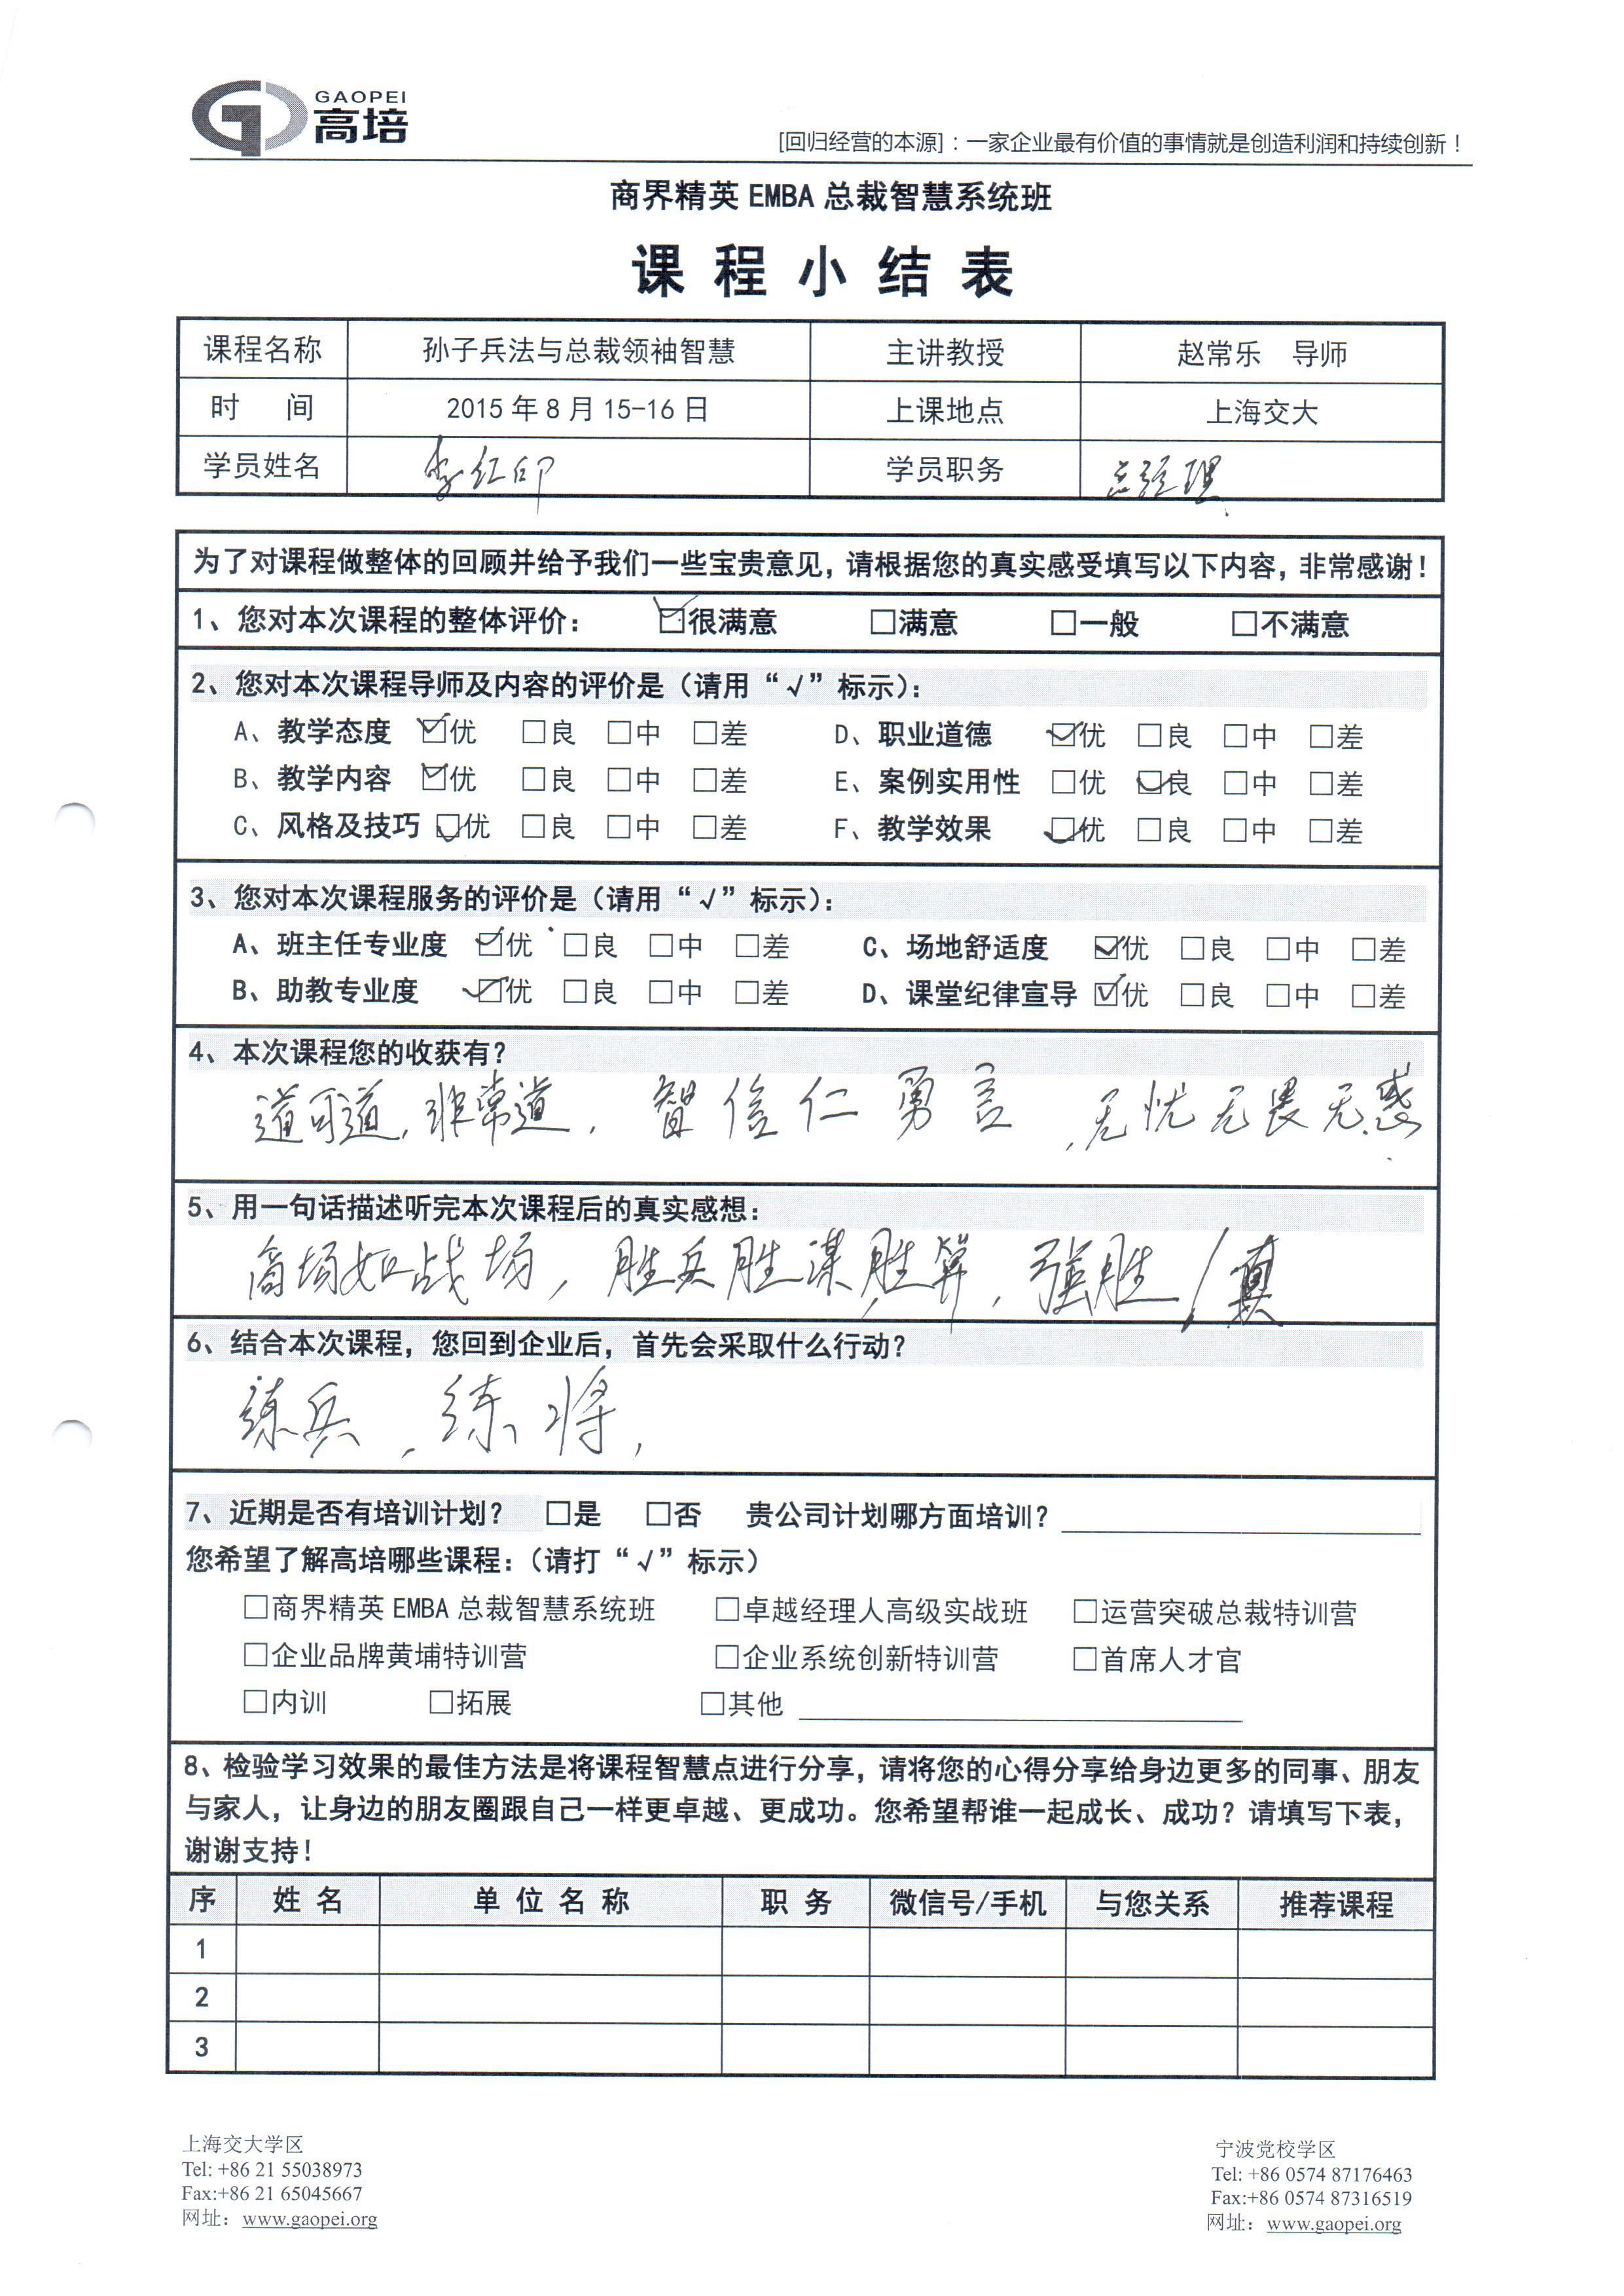 GAOPEI
高培
[回归经营的本源]：一家企业最有价值的事情就是创造利润和持续创新！
商界精英 EMBA 总裁智慧系统班
课 程 小 结 表
课程名称 孙子兵法与总裁领袖智慧 主讲教授 赵常乐 导师
时 间 2015 年 8 月 15-16 日 上课地点 上海交大
学员姓名 李红印 学员职务 总经理
为了对课程做整体的回顾并给予我们一些宝贵意见，请根据您的真实感受填写以下内容，非常感谢！
1、您对本次课程的整体评价： ☑很满意 □满意 □一般 □不满意
2、您对本次课程导师及内容的评价是（请用“√”标示）：
A、教学态度 ☑优 □良 □中 □差 D、职业道德 ☑优 □良 □中 □差
B、教学内容 ☑优 □良 □中 □差 E、案例实用性 □优 ☑良 □中 □差
C、风格及技巧 ☑优 □良 □中 □差 F、教学效果 ☑优 □良 □中 □差
3、您对本次课程服务的评价是（请用“√”标示）：
A、班主任专业度 ☑优 □良 □中 □差 C、场地舒适度 ☑优 □良 □中 □差
B、助教专业度 ☑优 □良 □中 □差 D、课堂纪律宣导 ☑优 □良 □中 □差
4、本次课程您的收获有？
道可道，非常道，智信仁勇言，无忧无畏无惑
5、用一句话描述听完本次课程后的真实感想：
商场如战场，胜兵胜谋，胜算，强胜/真
6、结合本次课程，您回到企业后，首先会采取什么行动？
练兵，练将，
7、近期是否有培训计划？ □是 □否 贵公司计划哪方面培训？
您希望了解高培哪些课程：（请打“√”标示）
□商界精英 EMBA 总裁智慧系统班 □卓越经理人高级实战班 □运营突破总裁特训营
□企业品牌黄埔特训营 □企业系统创新特训营 □首席人才官
□内训 □拓展 □其他
8、检验学习效果的最佳方法是将课程智慧点进行分享，请将您的心得分享给身边更多的同事、朋友
与家人，让身边的朋友圈跟自己一样更卓越、更成功。您希望帮谁一起成长、成功？请填写下表，
谢谢支持！
序 姓 名 单 位 名 称 职 务 微信号/手机 与您关系 推荐课程
1
2
3
上海交大学区 宁波党校学区
Tel: +86 21 55038973 Tel: +86 0574 87176463
Fax:+86 21 65045667 Fax:+86 0574 87316519
网址：www.gaopei.org 网址：www.gaopei.org